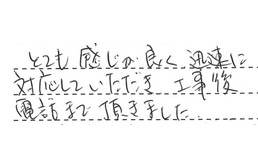 とても感じが良く迅速に
対応していただき工事後
電話まで頂きました